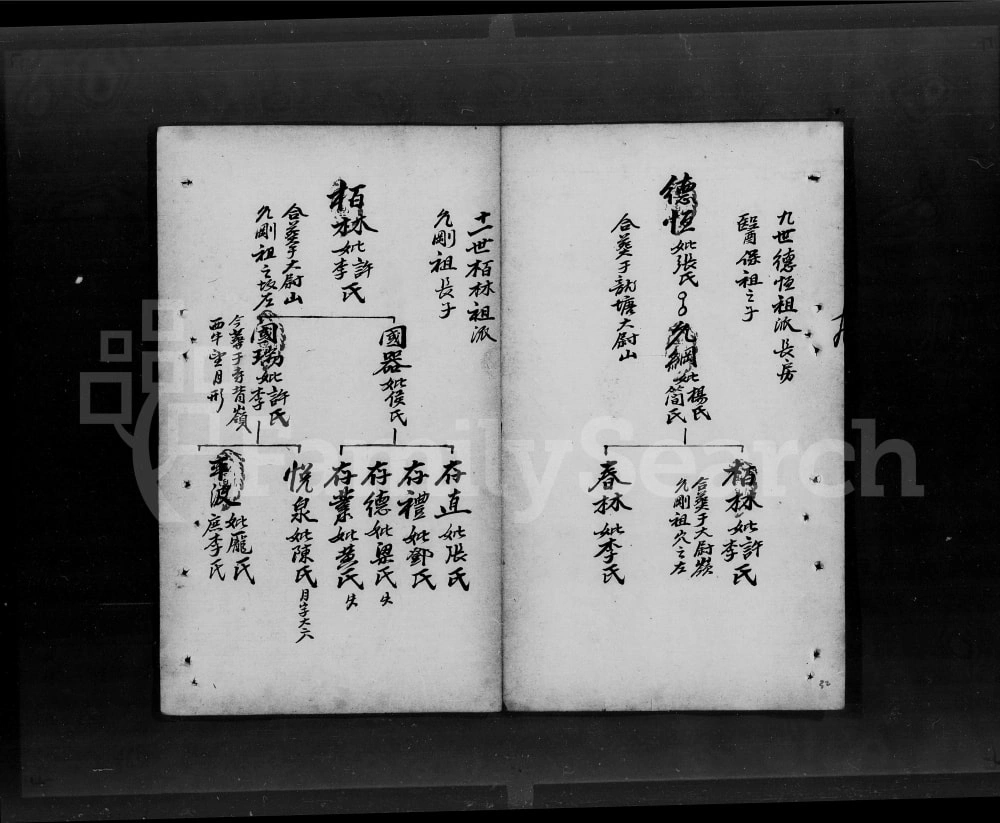 九世德恒祖派長房
醫保祖之子
德恒妣張氏
合葬于龍塘大尉山
允綱妣楊氏
簡氏
栢林妣許氏
李
合葬于大尉嶺
允剛祖穴之左
春林妣李氏
32
十一世栢林祖派
允剛祖長子
栢林妣許氏
李
合葬于大尉山
允剛祖之墳左
國器妣侯氏
國瑞妣許氏
李
今葬于寺背嶺
西牛望月形
存直妣張氏
存禮妣鄧氏
存德妣梁氏失
存業妣黄氏失
悅泉妣陳氏
月字大六
妣龐氏
庶李氏
FamilySearch